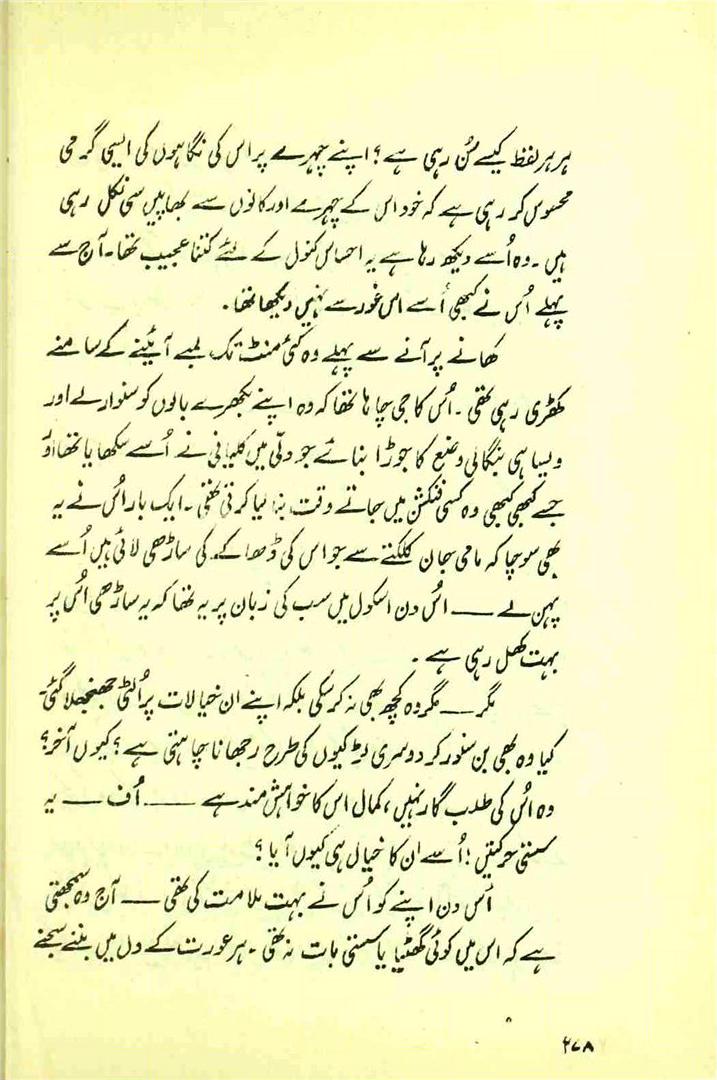 ہر ہر لفظ کیسے سُن رہی ہے؟ اپنے چہرے پر اس کی نگاہوں کی ایسی گرمی
محسوس کر رہی ہے کہ خود اس کے چہرے اور کانوں سے بھاپیں سی نکل رہی
ہیں۔ وہ اُسے دیکھ رہا ہے یہ احساس کنول کے لئے کتنا عجیب تھا۔ آج سے
پہلے اُس نے کبھی اُسے اس غور سے نہیں دیکھا تھا۔
کھانے پر آنے سے پہلے وہ کئی منٹ تک لمبے آئینے کے سامنے
کھڑی رہی تھی۔ اُس کا جی چاہا تھا کہ وہ اپنے بکھرے بالوں کو سنوار لے اور
ویسا ہی بنگالی وضع کا جوڑا بنائے جو دلّی میں کلیانی نے اُسے سکھایا تھا اور
جسے کبھی کبھی وہ کسی فنکشن میں جاتے وقت بنا لیا کرتی تھی۔ ایک بار اُس نے یہ
بھی سوچا کہ مامی جان کلکتے سے جو اس کی ڈھاکے کی ساڑھی لائی ہیں اُسے
پہن لے ــــ اُس دن اسکول میں سب کی زبان پر یہ تھا کہ یہ ساڑھی اُس پر
بہت کھل رہی ہے۔
مگر ــــ مگر وہ کچھ بھی نہ کر سکی بلکہ اپنے ان خیالات پر اُلٹی جھنجھلا گئی۔
کیا وہ بھی بن سنور کر دوسری لڑکیوں کی طرح رجھانا چاہتی ہے؟ کیوں آخر؟
وہ اُس کی طلب گار نہیں، کمال اس کا خواہش مند ہے ــــ اُف ــــ یہ
سستی حرکتیں! اُسے ان کا خیال ہی کیوں آیا؟
اُس دن اپنے کو اُس نے بہت ملامت کی تھی ــــ آج وہ سمجھتی
ہے کہ اس میں کوئی گھٹیا یا سستی بات نہ تھی۔ ہر عورت کے دل میں بننے سجنے
۲۷۸